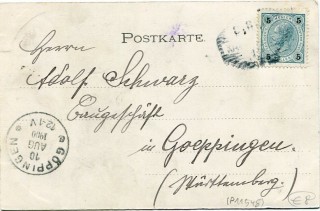 POSTKARTE.
5 5
5 5
Herrn
Adolf Schwarz
Baugeschäft
in
Goeppingen.
(Württemberg.)
GÖPPINGEN
10
AUG
1900
12-1 V.
(P11945)
€8